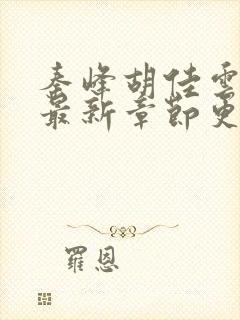 秦峰胡佳雲
最新章節更
羅恩